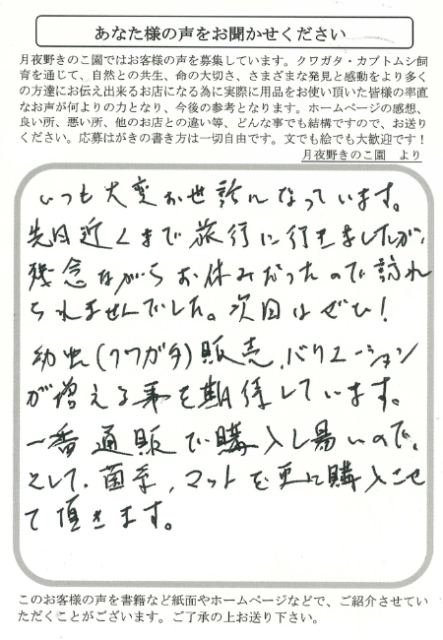 あなた様の声をお聞かせください
月夜野きのこ園ではお客様の声を募集しています。クワガタ・カブトムシ飼
育を通じて、自然との共生、命の大切さ、さまざまな発見と感動をより多く
の方達にお伝え出来るお店になる為に実際に用品をお使い頂いた皆様の率直
なお声が何よりの力となり、今後の参考となります。ホームページの感想、
良い所、悪い所、他のお店との違い等、どんな事でも結構ですので、お送り
ください。応募はがきの書き方は一切自由です。文でも絵でも大歓迎です！
月夜野きのこ園　より
いつも大変お世話になっています。
先日近くまで旅行に行きましたが、
残念ながらお休みだったので訪れ
られませんでした。次回はぜひ!
幼虫(クワガタ)販売、バリエーション
が増える事を期待しています。
一番通販で購入し易いので。
そして、菌糸、マットを更に購入させ
て頂きます。
このお客様の声を書籍など紙面やホームページなどで、ご紹介させてい
ただくことがございます。ご了承の上お送り下さい。